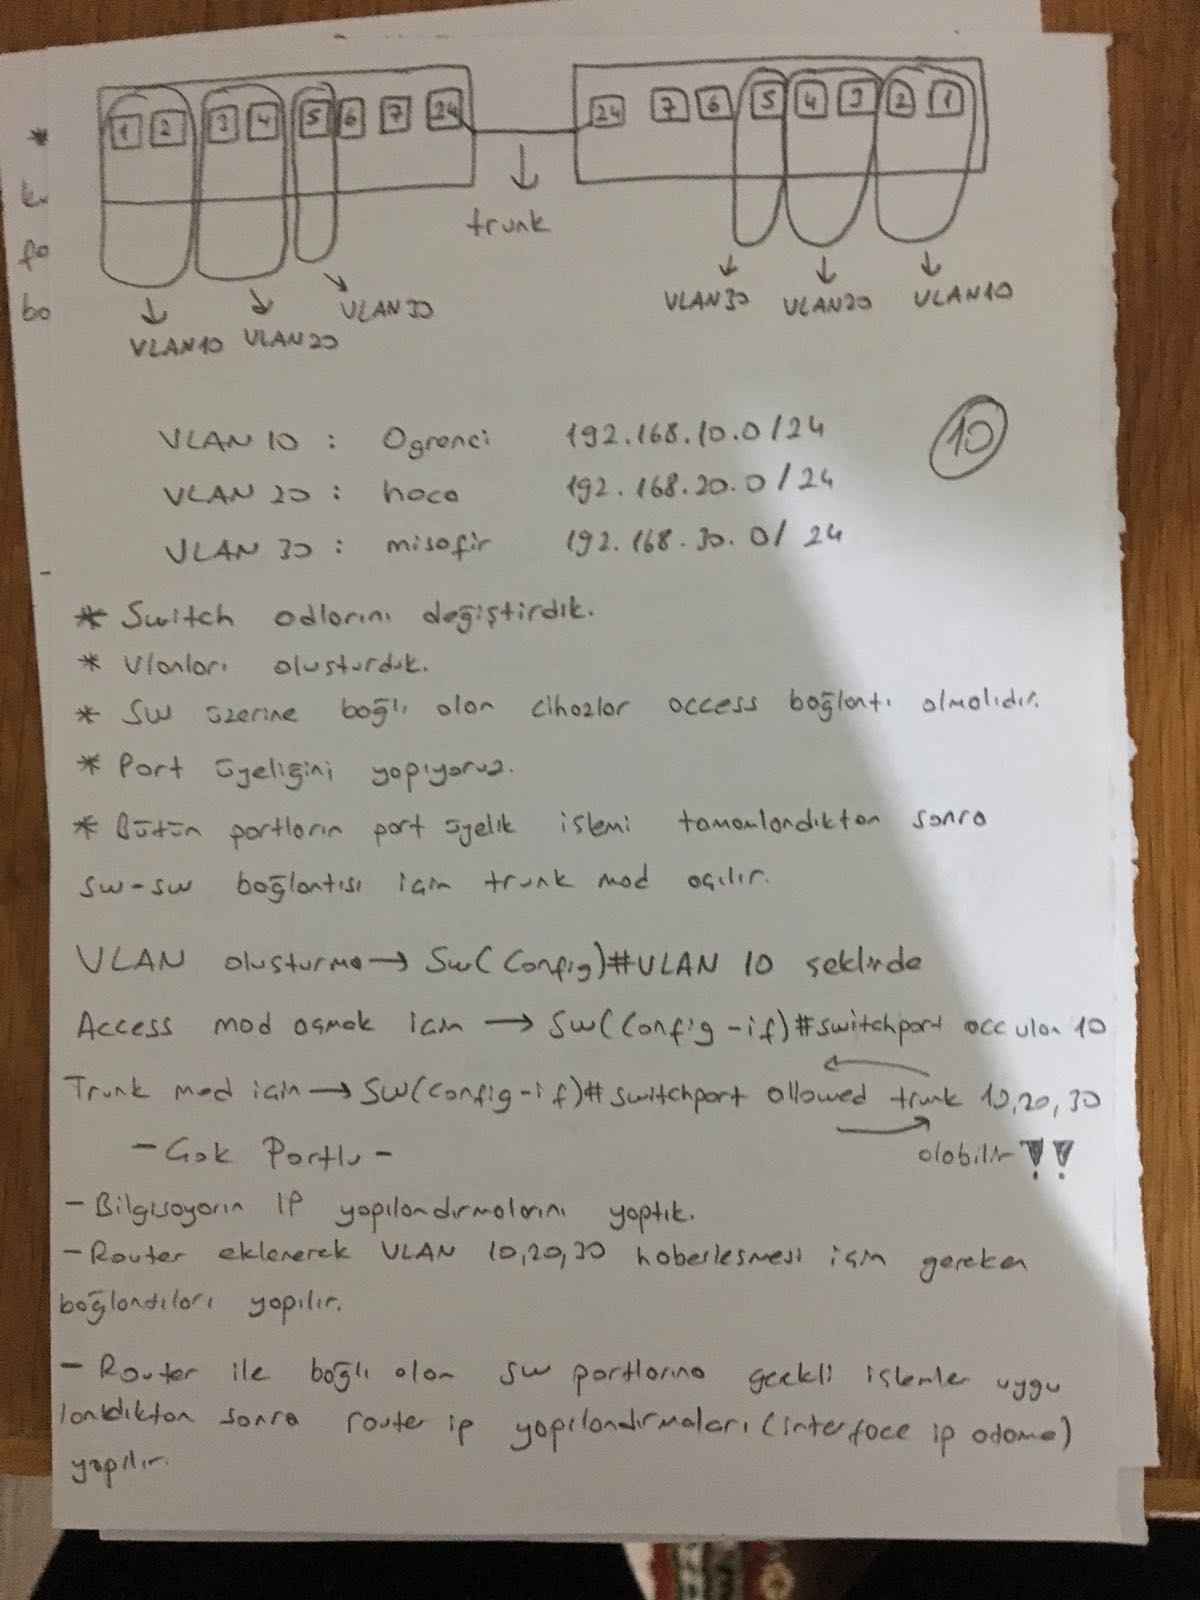 1 2 3 4 5 6 7 24
24 7 6 5 4 3 2 1
*
trunk
fo
bo
VLAN10 VLAN20 VLAN30
VLAN30 VLAN20 VLAN10
VLAN 10 : Ogrenci 192.168.10.0/24
10
VLAN 20 : hoca 192.168.20.0/24
VLAN 30 : misafir 192.168.30.0/24
* Switch adlarını değiştirdik.
* Vlanları olusturduk.
* SW üzerine bağlı olan cihazlar access bağlantı olmalıdır.
* Port üyeliğini yapıyoruz.
* Bütün portların port üyelik islemi tamamlandıktan sonra
sw-sw bağlantısı için trunk mod açılır.
VLAN olusturma → Sw(Config)#VLAN 10 şeklinde
Access mod açmak için → SW(Config-if)#switchport acc vlan 10
Trunk mod için → SW(Config-if)# switchport allowed trunk 10,20,30
olabilir !!
- Çok Portlu -
- Bilgisayarın IP yapılandırmalarını yaptık.
- Router eklenerek VLAN 10,20,30 haberlesmesi için gereken
bağlantıları yapılır.
- Router ile bağlı olan sw portlarına gerekli işlemler uygu
landıktan sonra router ip yapılandırmaları (interface ip atama)
yapılır.